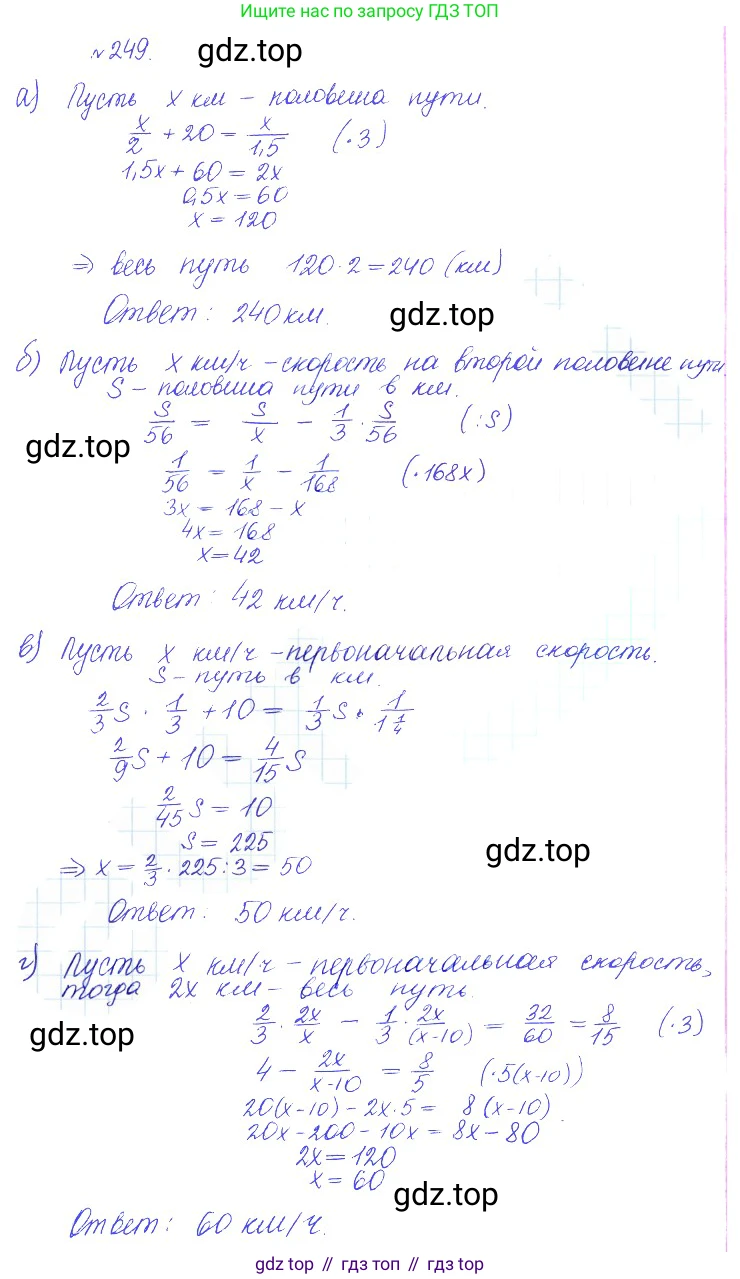 Ищите нас по запросу ГДЗ ТОП
№249. gdz.top
а) Пусть x км – половина пути.
x/2 + 20 = x/1,5 (·3)
1,5x + 60 = 2x
0,5x = 60
x = 120
⇒ весь путь 120·2 = 240 (км)
Ответ: 240 км. gdz.top
б) Пусть x км/ч – скорость на второй половине пути.
S – половина пути в км.
S/56 = S/x – 1/3 · S/56 (:S)
gdz.top
1/56 = 1/x – 1/168 (·168x)
3x = 168 – x
4x = 168
x = 42
Ответ: 42 км/ч.
в) Пусть x км/ч – первоначальная скорость.
S – путь в км.
2/3 S · 1/3 + 10 = 1/3 S · 1/1 1/4
2/9 S + 10 = 4/15 S
2/45 S = 10
S = 225
gdz.top
⇒ x = 2/3 · 225 : 3 = 50
Ответ: 50 км/ч.
г) Пусть x км/ч – первоначальная скорость,
тогда 2x км – весь путь.
gdz.top
2/3 · 2x/x – 1/3 · 2x/(x-10) = 32/60 = 8/15 (·3)
4 – 2x/x-10 = 8/5 (·5(x-10))
20(x-10) – 2x·5 = 8(x-10)
20x – 200 – 10x = 8x – 80
2x = 120
x = 60
gdz.top
Ответ: 60 км/ч.
gdz top // гдз топ // gdz top